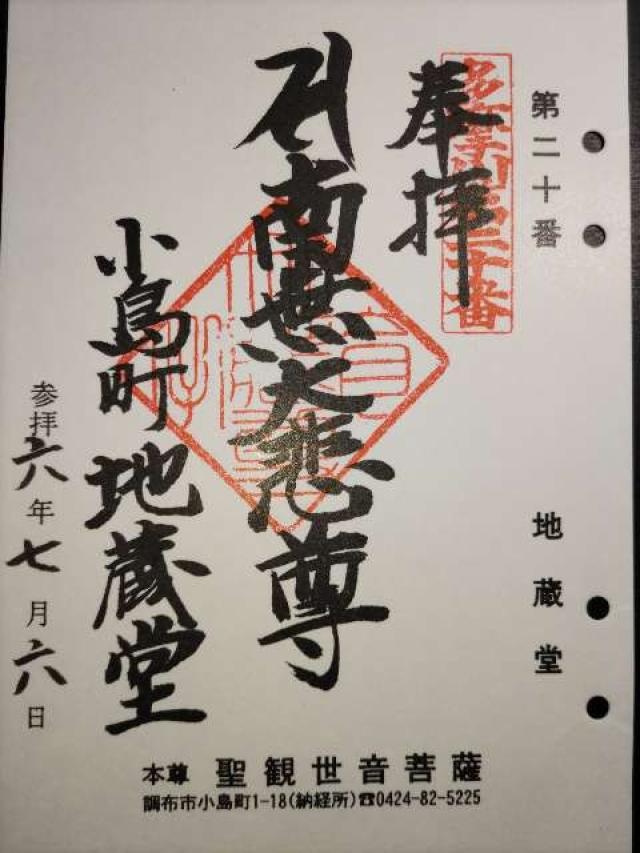 第二十番　地蔵堂
奉拝
南無大悲尊
小島町地蔵堂
参拝六年七月六日
本尊 聖観世音菩薩
調布市小島町1-18(納経所)☎0424-82-5225